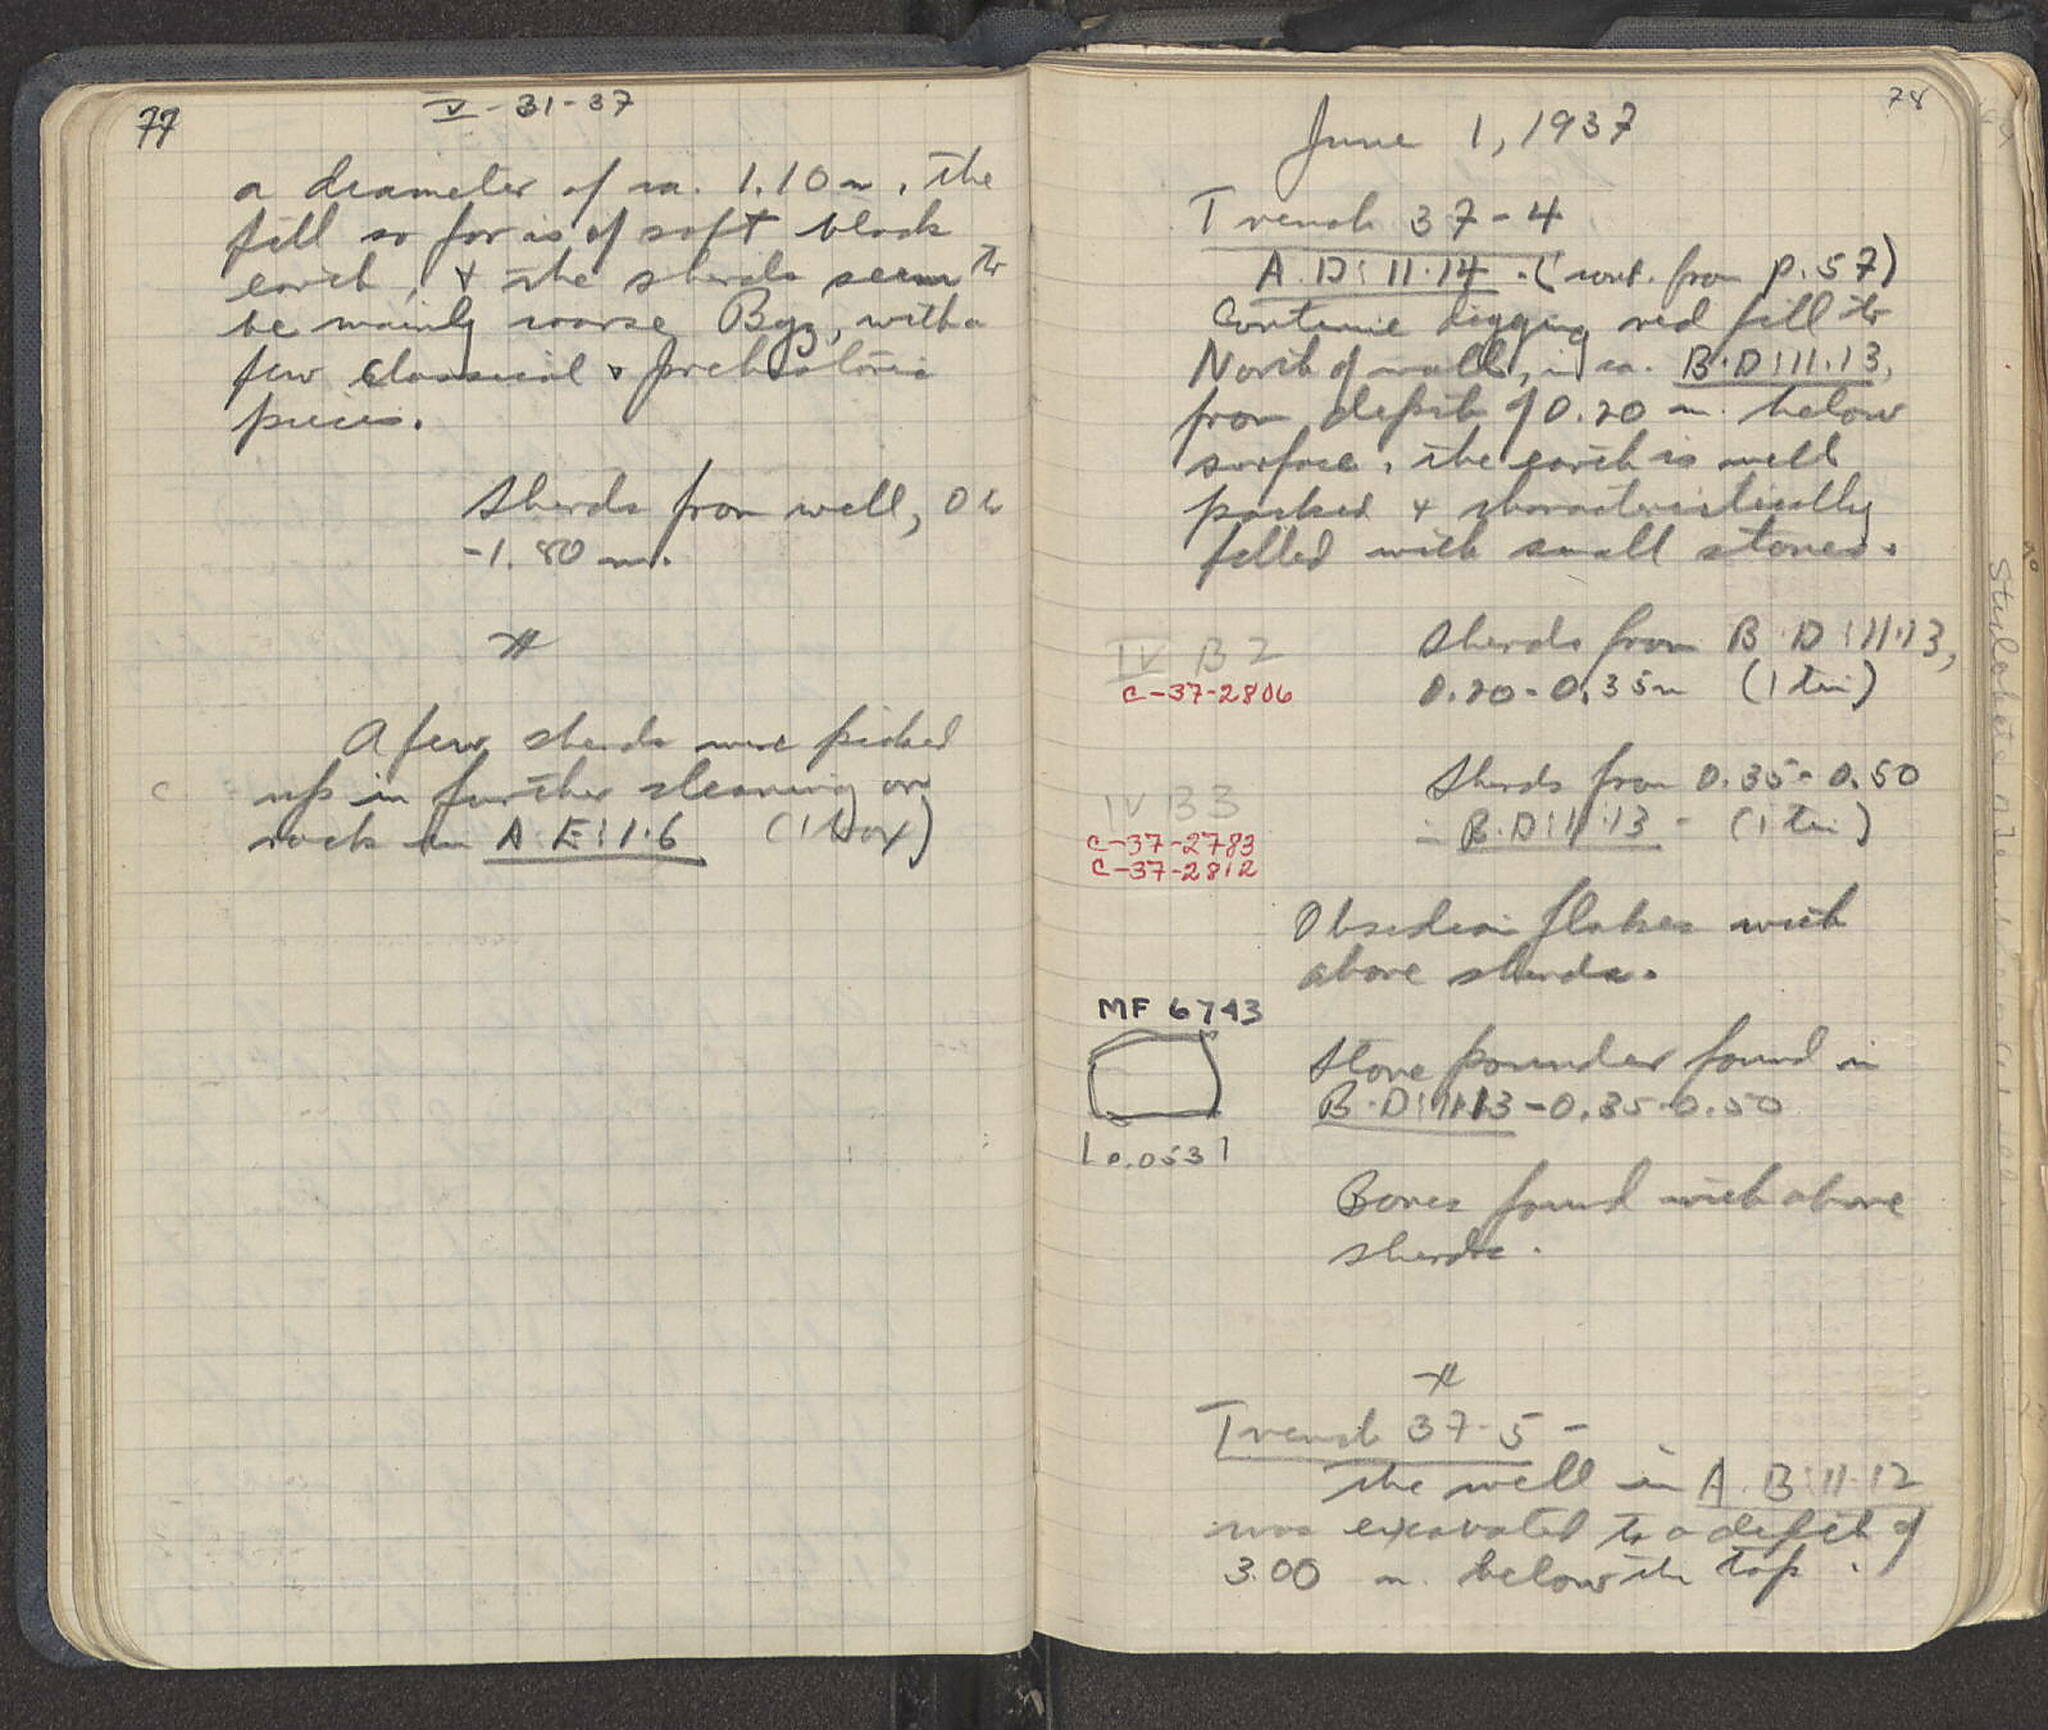 77
V-31-37
a diameter of ca. 1.10 m. The
fill so far is of soft black
earth, + the sherds seem to
be mainly coarse Byz, with a
few classical + prehistoric
pieces.
Sherds from well, 0 to
-1.80 m.
A few sherds were picked
c
up in further cleaning on
rock in A·E:1·6 (1 box)
78
June 1, 1937
Trench 37-4
A·D:11·14 - (cont. from p.57)
Continue digging red fill to
North of wall, in ca. B·D:11·13,
from depth of 0.20 m. below
surface. The earth is well
packed + characteristically
filled with small stones.
IV B2
C-37-2806
Sherds from B·D:11·13,
0.20-0.35m (1 tin)
IV B3
C-37-2783
C-37-2812
Sherds from 0.35-0.50
- B·D:11·13 - (1 tin)
Obsidian flakes with
above sherds.
MF 6743
|0.053|
Stone pounder found in
B·D:11·13-0.35-0.50
Bones found with above
sherds.
Trench 37-5 -
The well in A·B:11·12
was excavated to a depth of
3.00 m. below the top.